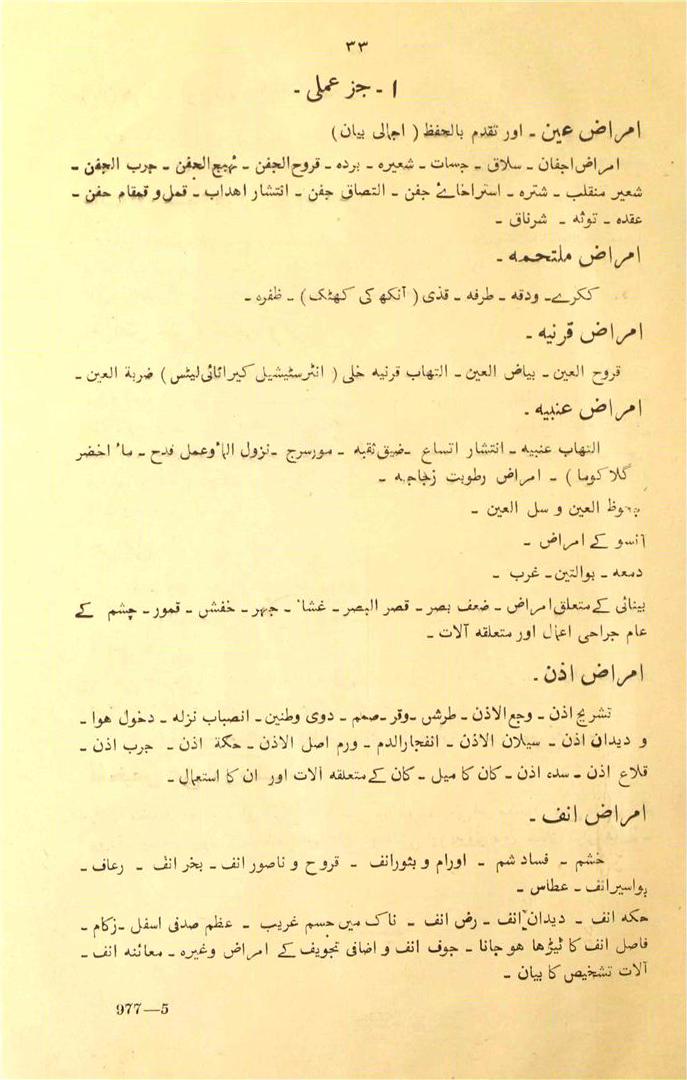 ۳۳
۱ ـ جز عملی ـ
امراض عین ـ اور تقدم بالحفظ ( اجمالی بیان )
امراض اجفان ـ سلاق ـ جسات ـ شعیرہ ـ بردہ ـ قروح الجفن ـ تہیج الجفن ـ جرب الجفن ـ
شعیر منقلب ـ شترہ ـ استراخائے جفن ـ التصاق جفن ـ انتشار اهداب ـ قمل و قمقام جفن ـ
عقدہ ـ توثه ـ شرناق ـ
امراض ملتحمه ـ
ککرے ـ ودقه ـ طرفه ـ قذی ( آنکھ کی کھٹک ) ـ ظفرہ ـ
امراض قرنیه ـ
قروح العین ـ بیاض العین ـ التہاب قرنیه خلی ( انٹرسٹیشیل کیراٹائی لیٹس ) ضربة العین ـ
امراض عنبیه ـ
التہاب عنبیه ـ انتشار اتساع ـ ضیق ثقبه ـ مورسرج ـ نزول الماٴ و عمل قدح ـ ماٴ اخضر
گلاکوما ) ـ امراض رطوبت زجاجیه ـ
جحوظ العین و سل العین ـ
آنسو کے امراض ـ
دمعه ـ بوالتین ـ غرب ـ
بینائی کے متعلق امراض ـ ضعف بصر ـ قصر البصر ـ غشاٴ ـ جہر ـ خفش ـ قمور ـ چشم کے
عام جراحی اعمال اور متعلقه آلات ـ
امراض اذن ـ
تشریح اذن ـ وجع الاذن ـ طرش ـ وقر ـ صمم ـ دوی و طنین ـ انصباب نزلہ ـ دخول هوا ـ
و دیدان اذن ـ سیلان الاذن ـ انفجار الدم ـ ورم اصل الاذن ـ حکة اذن ـ جرب اذن ـ
قلاع اذن ـ سدہ اذن ـ کان کا میل ـ کان کے متعلقه آلات اور ان کا استعمال ـ
امراض انف ـ
خشم ـ فساد شم ـ اورام و بثور انف ـ قروح و ناصور انف ـ بخر انف ـ رعاف ـ
بواسیر انف ـ عطاس ـ
حکه انف ـ دیدان انف ـ رض انف ـ ناک میں جسم غریب ـ عظم صدفی اسفل ـ زکام ـ
فاصل انف کا ٹیڑھا هو جانا ـ جوف انف و اضافی تجویف کے امراض وغیرہ ـ معائنه انف ـ
آلات تشخیص کا بیان ـ
977—5